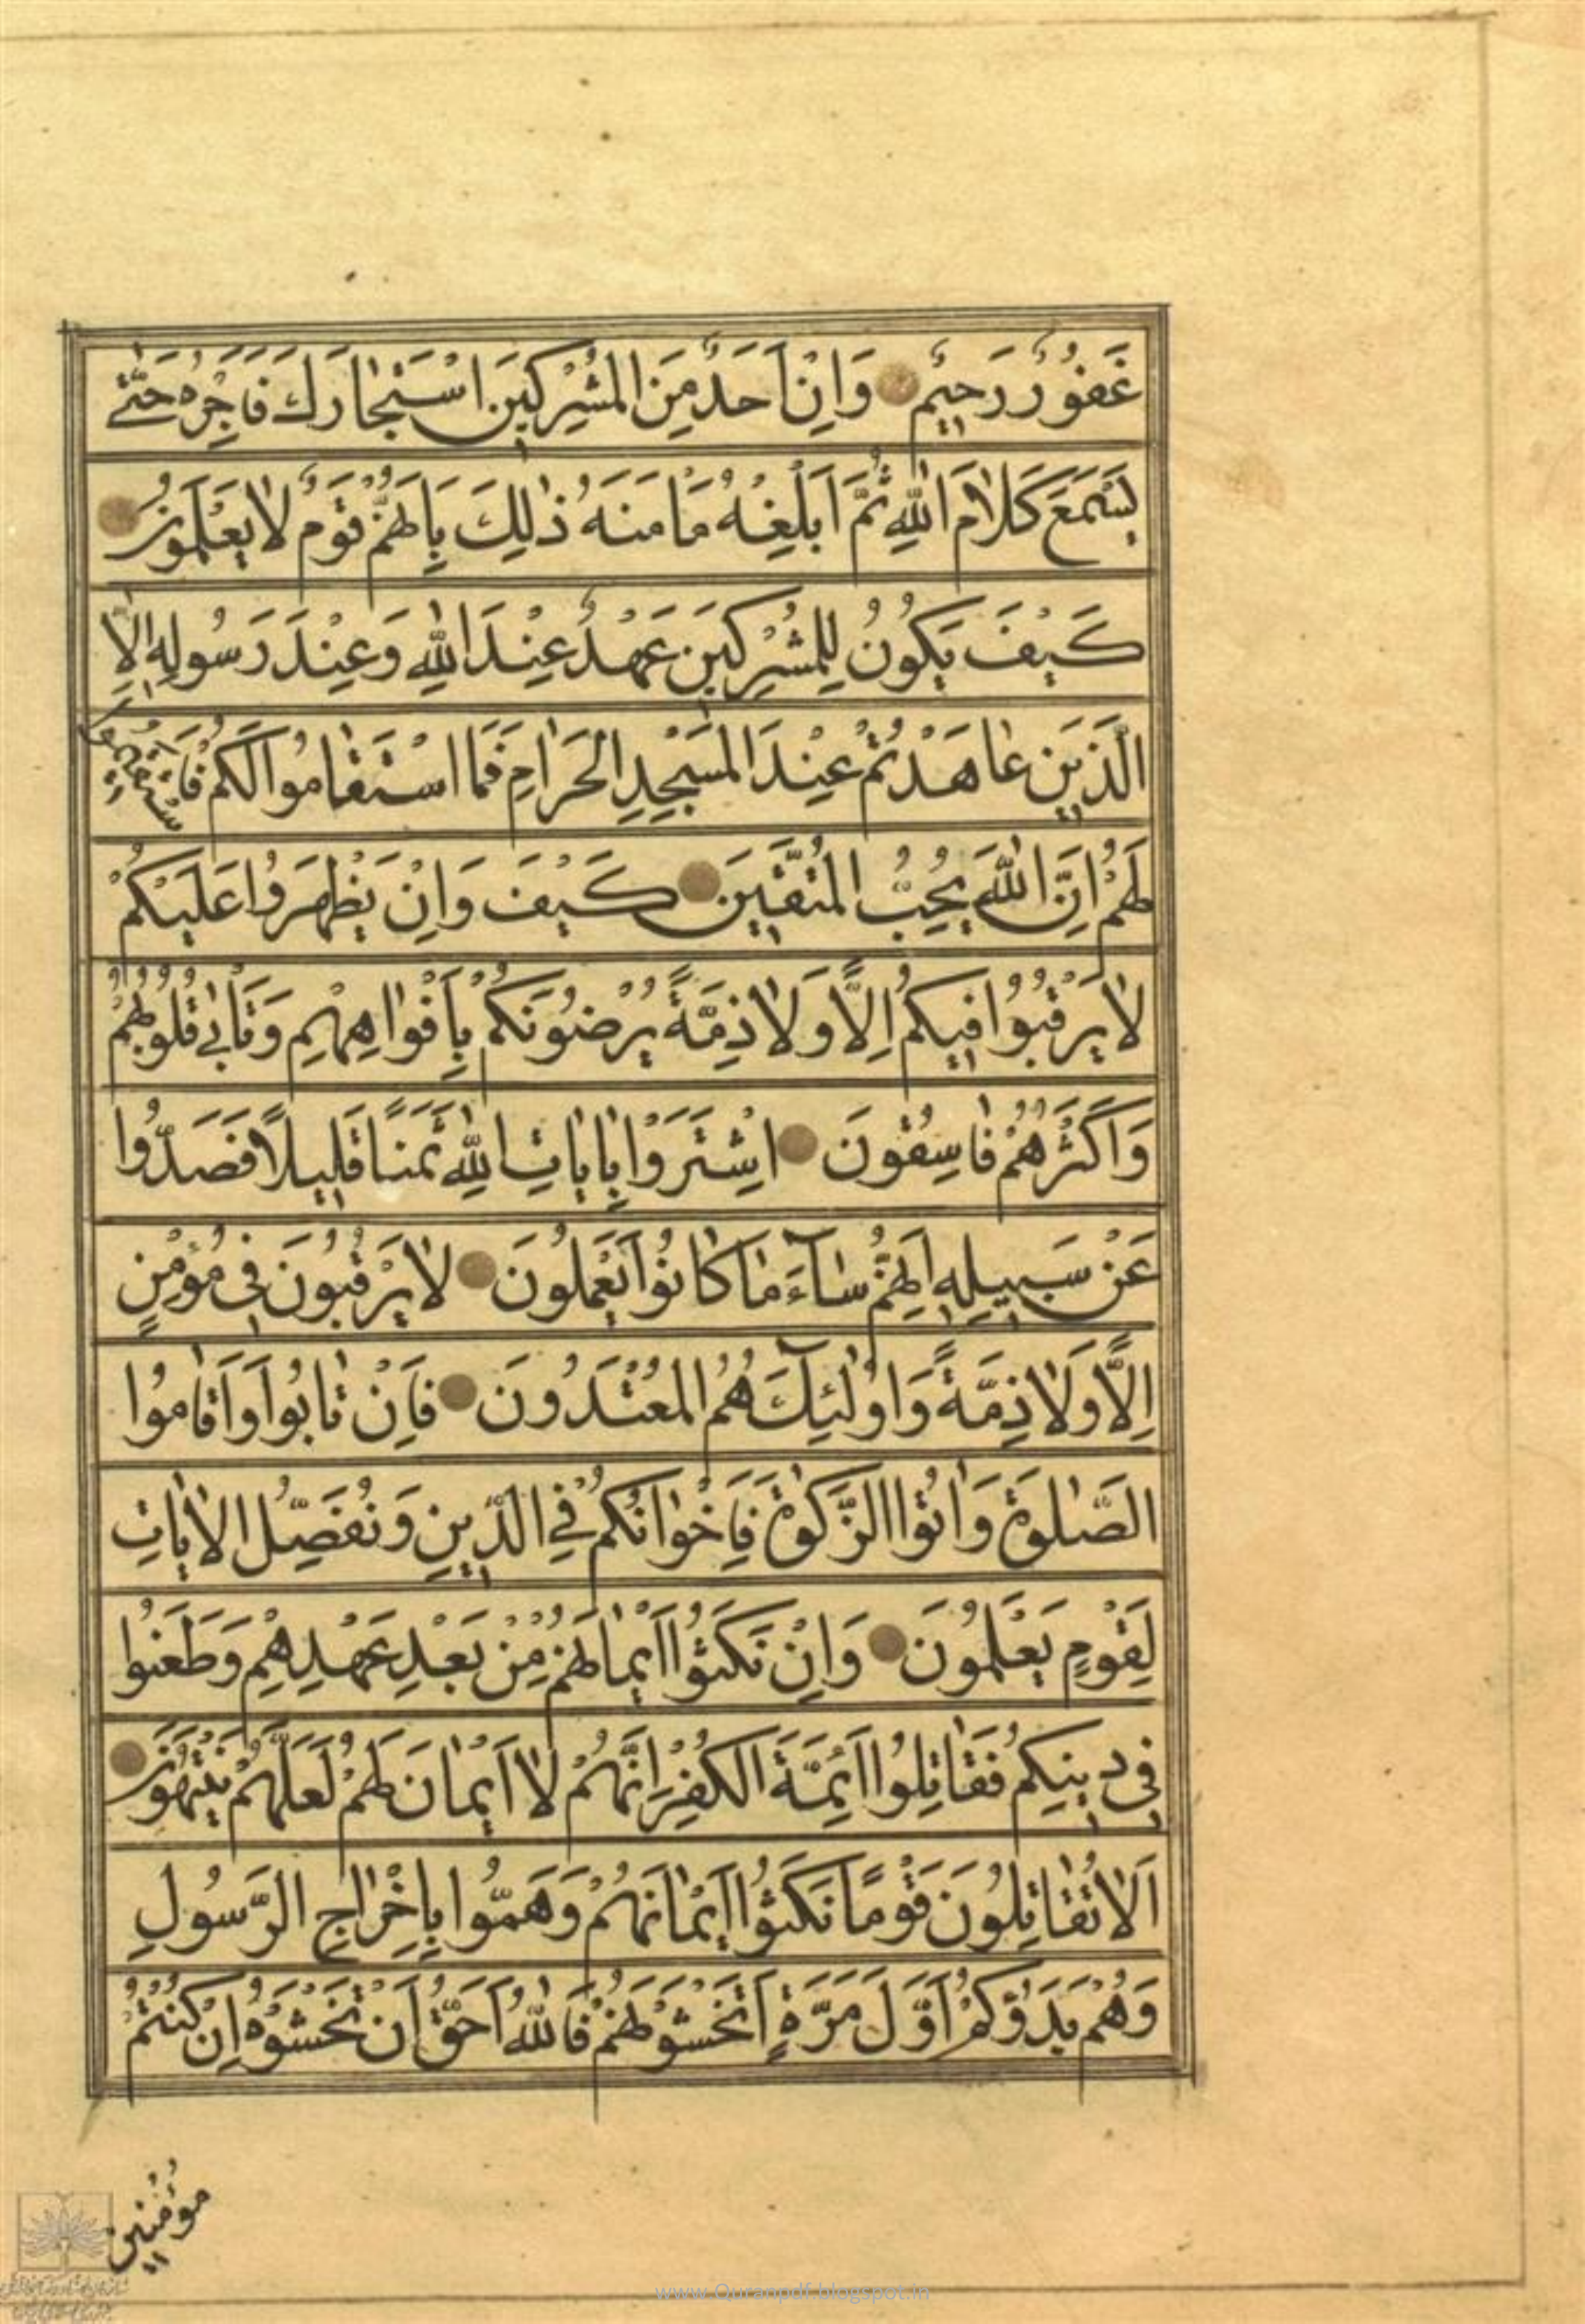 غَفُورٌ رَحِيمٌ وَاِنْ اَحَدٌ مِنَ الْمُشْرِكِينَ اسْتَجٰارَكَ فَاَجِرْهُ حَتّٰى
يَسْمَعَ كَلٰامَ اللّٰهِ ثُمَّ اَبْلِغْهُ مَاْمَنَهُ ذٰلِكَ بِاَنَّهُمْ قَوْمٌ لٰا يَعْلَمُونَ
كَيْفَ يَكُونُ لِلْمُشْرِكِينَ عَهْدٌ عِنْدَ اللّٰهِ وَعِنْدَ رَسُولِهِ اِلَّا
الَّذِينَ عٰاهَدْتُمْ عِنْدَ الْمَسْجِدِ الْحَرٰامِ فَمَا اسْتَقٰامُوا لَكُمْ فَاسْتَقِيمُوا
لَهُمْ اِنَّ اللّٰهَ يُحِبُّ الْمُتَّقِينَ كَيْفَ وَاِنْ يَظْهَرُوا عَلَيْكُمْ
لٰا يَرْقُبُوا فِيكُمْ اِلًّا وَلٰا ذِمَّةً يُرْضُونَكُمْ بِاَفْوٰاهِهِمْ وَتَاْبٰى قُلُوبُهُمْ
وَاَكْثَرُهُمْ فٰاسِقُونَ اِشْتَرَوْا بِاٰيٰاتِ اللّٰهِ ثَمَنًا قَلِيلًا فَصَدُّوا
عَنْ سَبِيلِهِ اِنَّهُمْ سٰآءَ مٰا كٰانُوا يَعْمَلُونَ لٰا يَرْقُبُونَ فِى مُؤْمِنٍ
اِلًّا وَلٰا ذِمَّةً وَاُولٰئِكَ هُمُ الْمُعْتَدُونَ فَاِنْ تٰابُوا وَاَقٰامُوا
الصَّلٰوةَ وَاٰتَوُا الزَّكٰوةَ فَاِخْوٰانُكُمْ فِي الدِّينِ وَنُفَصِّلُ الْاٰيٰاتِ
لِقَوْمٍ يَعْلَمُونَ وَاِنْ نَكَثُوا اَيْمٰانَهُمْ مِنْ بَعْدِ عَهْدِهِمْ وَطَعَنُوا
فِى دِينِكُمْ فَقٰاتِلُوا اَئِمَّةَ الْكُفْرِ اِنَّهُمْ لٰا اَيْمٰانَ لَهُمْ لَعَلَّهُمْ يَنْتَهُونَ
اَلٰا تُقٰاتِلُونَ قَوْمًا نَكَثُوا اَيْمٰانَهُمْ وَهَمُّوا بِاِخْرٰاجِ الرَّسُولِ
وَهُمْ بَدَؤُكُمْ اَوَّلَ مَرَّةٍ اَتَخْشَوْنَهُمْ فَاللّٰهُ اَحَقُّ اَنْ تَخْشَوْهُ اِنْ كُنْتُمْ
مُؤْمِنِينَ
www.Quranpdf.blogspot.in